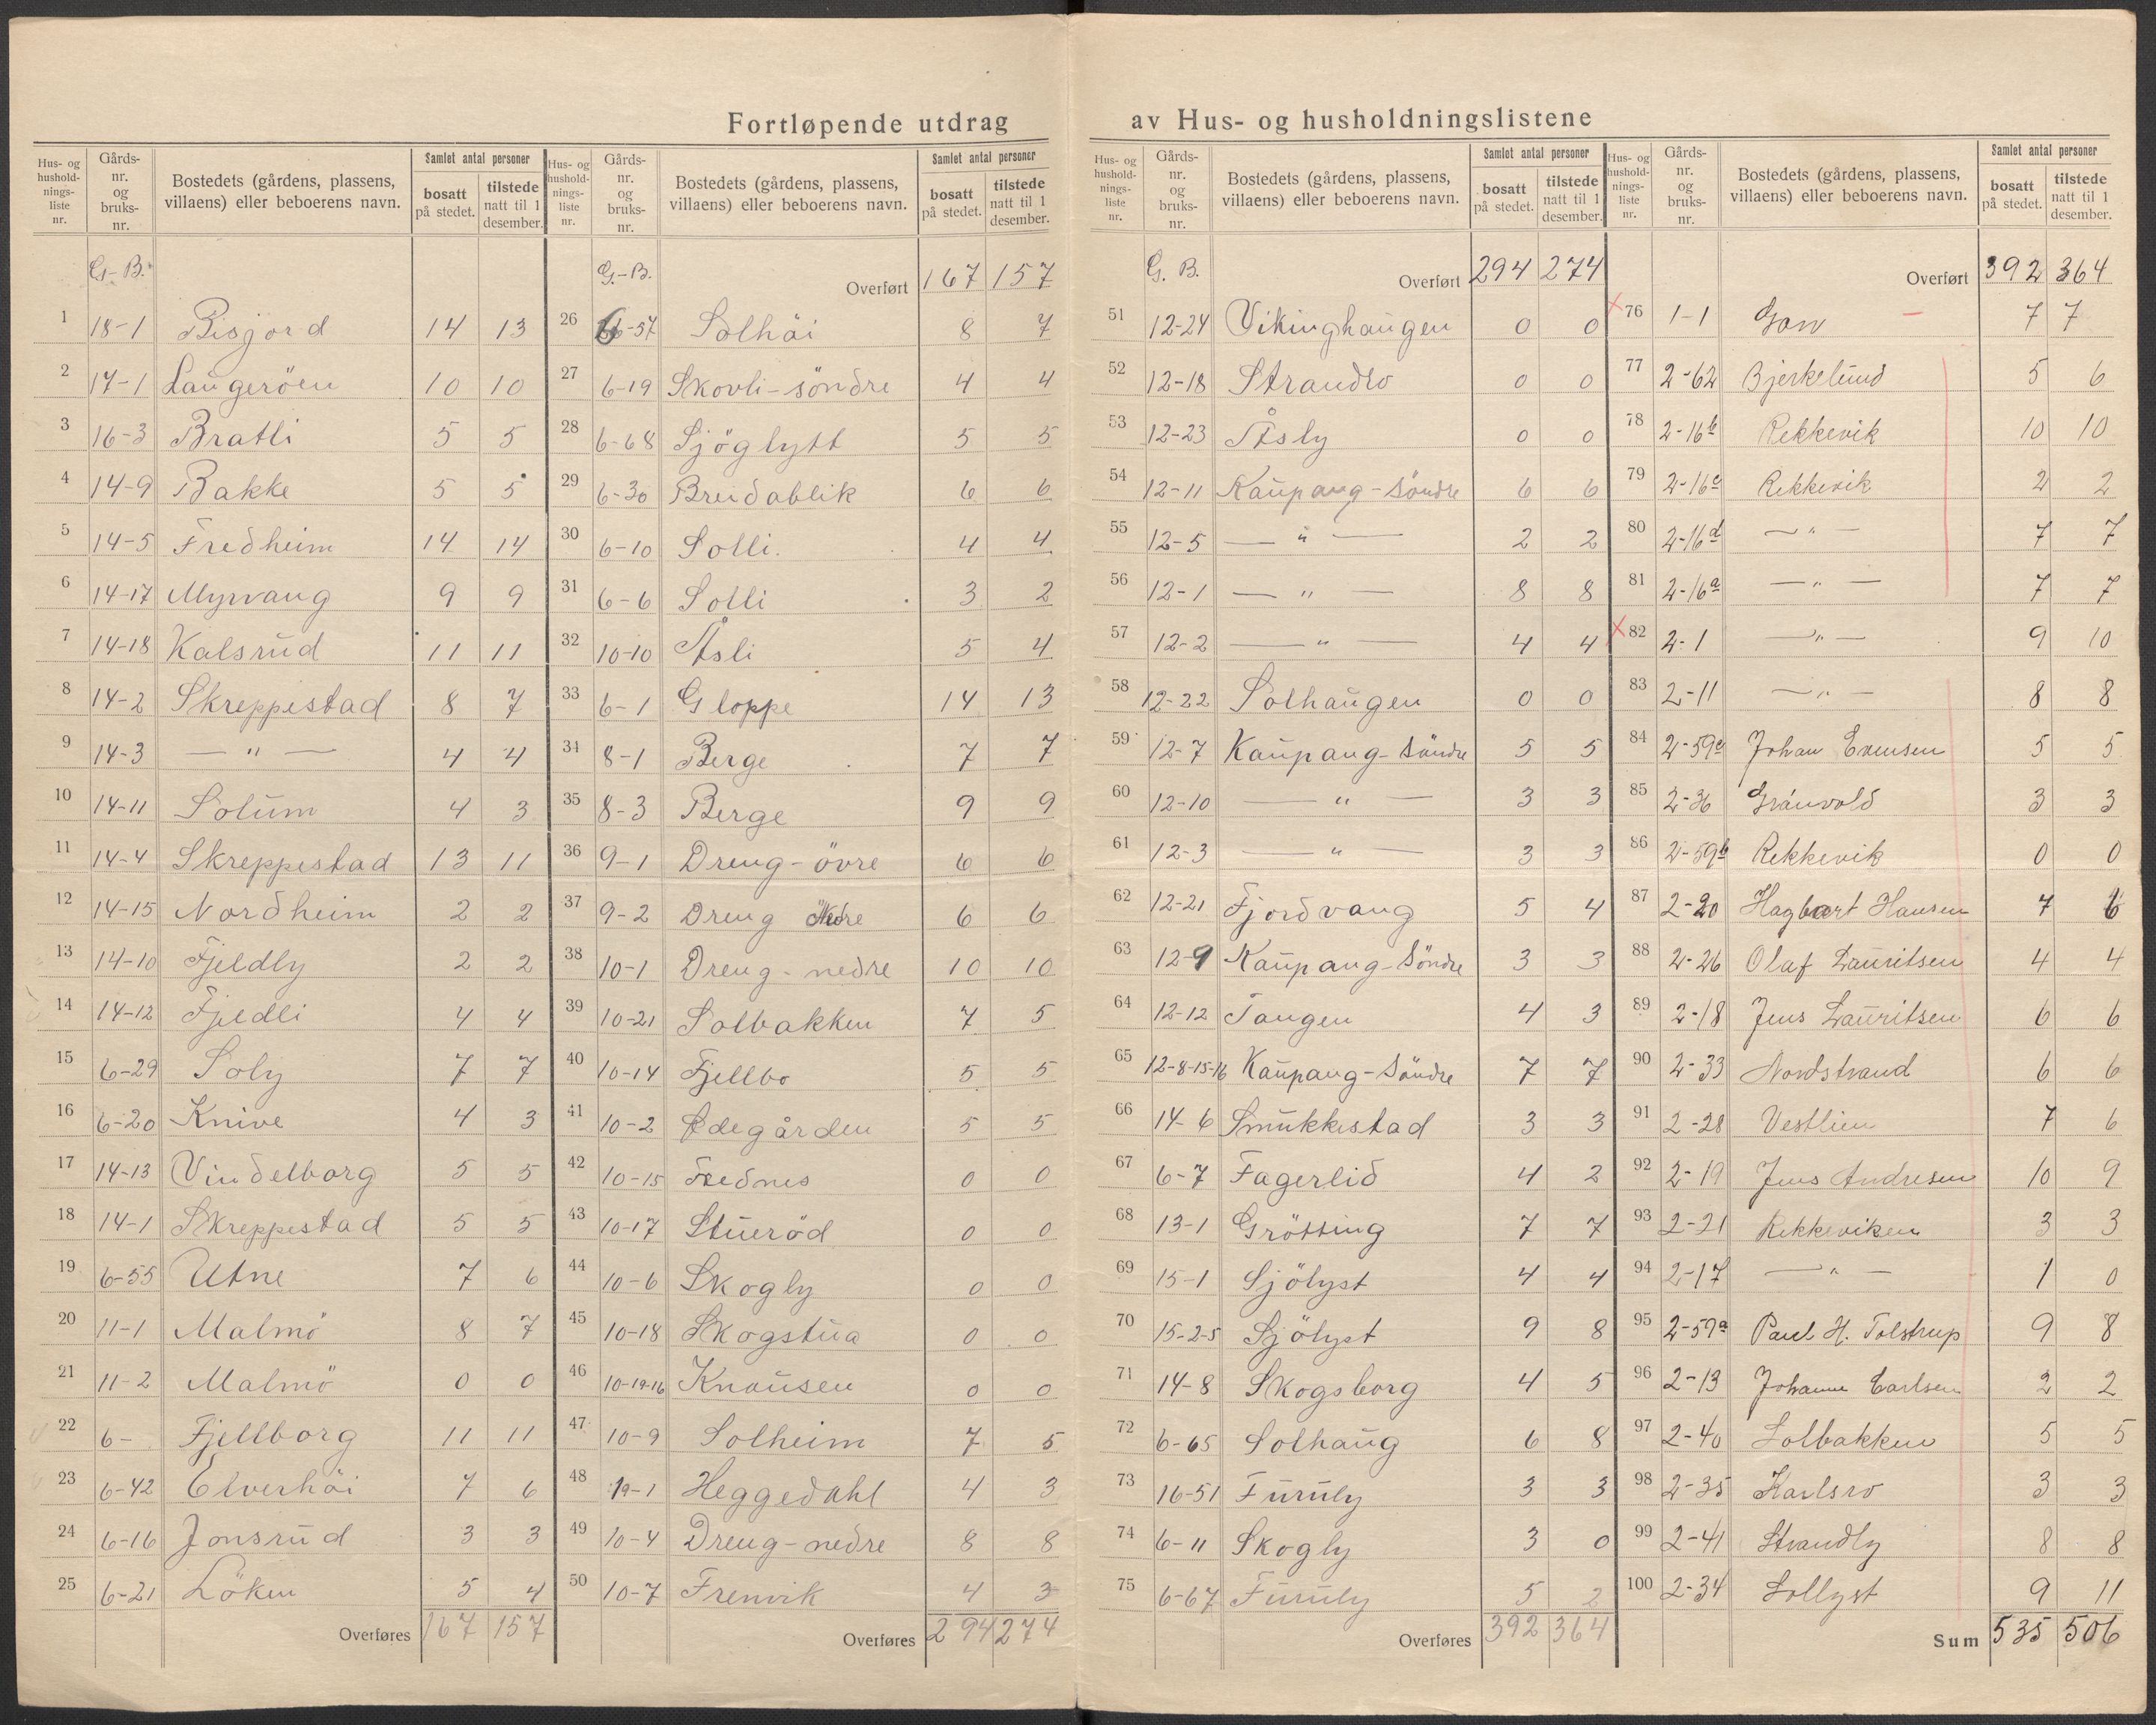 Fortløpende utdrag av Hus- og husholdningslistene
Hus- og husholdnings-liste nr. | Gårds-nr. og bruks-nr. | Bostedets (gårdens, plassens, villaens) eller beboerens navn. | Samlet antal personer | bosatt på stedet. | tilstede natt til 1 desember.
G- B.
1 18-1 Bisjord 14 13
2 17-1 Laugeröen 10 10
3 16-3 Bratli 5 5
4 14-9 Bakke 5 5
5 14-5 Fredheim 14 14
6 14-17 Myrvang 9 9
7 14-18 Kalsrud 11 11
8 14-2 Skreppestad 8 7
9 14-3 — " — 4 4
10 14-11 Solum 4 3
11 14-4 Skreppestad 13 11
12 14-15 Nordheim 2 2
13 14-10 Fjeldly 2 2
14 14-12 Fjeldli 4 4
15 6-29 Soly 7 7
16 6-20 Knive 4 3
17 14-13 Vindelborg 5 5
18 14-1 Skreppestad 5 5
19 6-55 Utne 7 6
20 11-1 Malmö 8 7
21 11-2 Malmö 0 0
22 6- Fjellborg 11 11
23 6-42 Elverhöi 7 6
24 6-16 Jonsrud 3 3
25 6-21 Löken 5 4
Overføres 167 157
Hus- og husholdnings-liste nr. | Gårds-nr. og bruks-nr. | Bostedets (gårdens, plassens, villaens) eller beboerens navn. | Samlet antal personer | bosatt på stedet. | tilstede natt til 1 desember.
G.-B. Overført 167 157
26 6-57 Solhöi 8 7
27 6-19 Skovli-söndre 4 4
28 6-68 Sjöglytt 5 5
29 6-30 Breidablik 6 6
30 6-10 Solli. 4 4
31 6-6 Solli 3 2
32 10-10 Åsli 5 4
33 6-1 Gloppe 14 13
34 8-1 Berge 7 7
35 8-3 Berge 9 9
36 9-1 Dreng-övre 6 6
37 9-2 Dreng Nedre 6 6
38 10-1 Dreng-nedre 10 10
39 10-21 Solbakken 7 5
40 10-14 Fjellbo 5 5
41 10-2 Ødegården 5 5
42 10-15 Frednes 0 0
43 10-17 Stueröd 0 0
44 10-6 Skogly 0 0
45 10-18 Skogstua 0 0
46 10-19-16 Knausen 0 0
47 10-9 Solheim 7 5
48 19-1 Heggedahl 4 3
49 10-4 Dreng-nedre 8 8
50 10-7 Frenvik 4 3
Overføres 294 274
Hus- og husholdnings-liste nr. | Gårds-nr. og bruks-nr. | Bostedets (gårdens, plassens, villaens) eller beboerens navn. | Samlet antal personer | bosatt på stedet. | tilstede natt til 1 desember.
G. B. Overført 294 274
51 12-24 Vikinghaugen 0 0
52 12-18 Strandro 0 0
53 12-23 Åsly 0 0
54 12-11 Kaupang-Söndre 6 6
55 12-5 — " — 2 2
56 12-1 — " — 8 8
57 12-2 — " — 4 4
58 12-22 Solhaugen 0 0
59 12-7 Kaupang-Söndre 5 5
60 12-10 — " — 3 3
61 12-3 — " — 3 3
62 12-21 Fjordvang 5 4
63 12-9 Kaupang-Söndre 3 3
64 12-12 Tangen 4 3
65 12-8-15-16 Kaupang-Söndre 7 7
66 14-6 Smukkestad 3 3
67 6-7 Fagerlid 4 2
68 13-1 Grötting 7 7
69 15-1 Sjölyst 4 4
70 15-2-5 Sjölyst 9 8
71 14-8 Skogsborg 4 5
72 6-65 Solhaug 6 8
73 16-51 Furuly 3 3
74 6-11 Skogly 3 0
75 6-67 Furuly 5 2
Overføres 392 364
Hus- og husholdnings-liste nr. | Gårds-nr. og bruks-nr. | Bostedets (gårdens, plassens, villaens) eller beboerens navn. | Samlet antal personer | bosatt på stedet. | tilstede natt til 1 desember.
Overført 392 364
x 76 1-1 Gon — 7 7
77 2-62 Bjerkelund 5 6
78 2-16b Rekkevik 10 10
79 2-16c Rekkevik 2 2
80 2-16d — " — 7 7
81 2-16a — " — 7 7
x 82 2-1 — " — 9 10
83 2-11 — " — 8 8
84 2-59c Johan Evensen 5 5
85 2-36 Grånvold 3 3
86 2-59b Rekkevik 0 0
87 2-20 Hagbart Hansen 7 6
88 2-26 Olaf Lauritsen 4 4
89 2-18 Jens Lauritsen 6 6
90 2-33 Nordstrand 6 6
91 2-28 Vestlien 7 6
92 2-19 Jens Andresen 10 9
93 2-21 Rekkeviken 3 3
94 2-17 — " — 1 0
95 2-59a Paul H. Tolstrup 9 8
96 2-13 Johanne Carlsen 2 2
97 2-40 Solbakken 5 5
98 2-35 Karlsro 3 3
99 2-41 Strandly 8 8
100 2-34 Sollyst 9 11
Sum 535 506